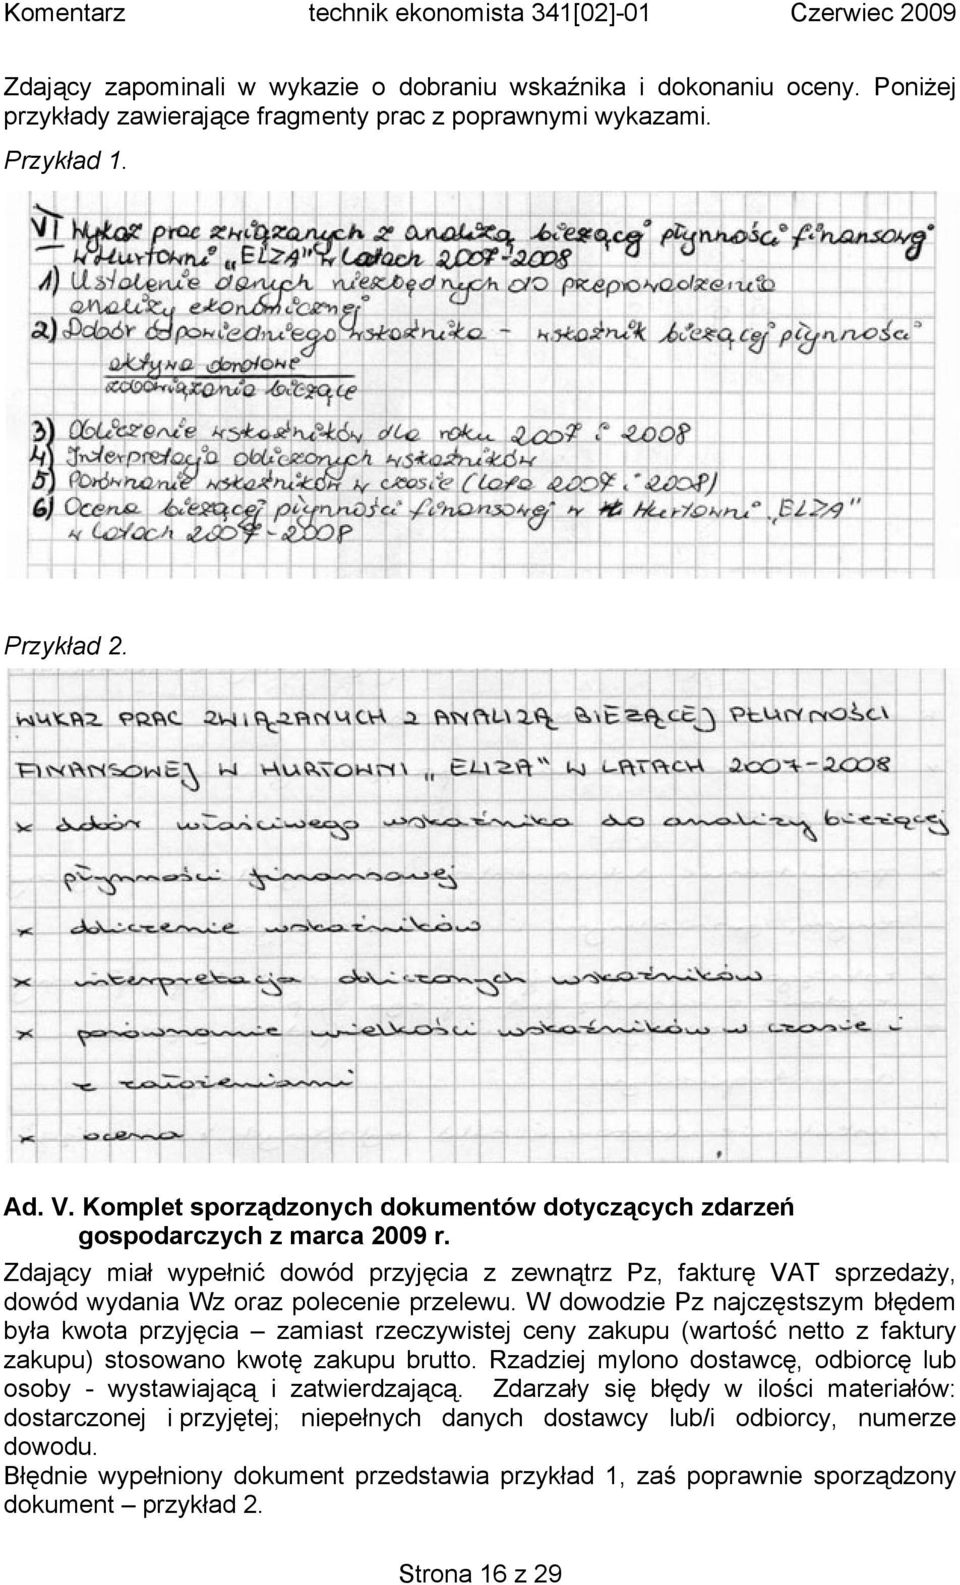 Komentarz technik ekonomista 341[02]-01 Czerwiec 2009
Zdający zapominali w wykazie o dobraniu wskaźnika i dokonaniu oceny. Poniżej
przykłady zawierające fragmenty prac z poprawnymi wykazami.
Przykład 1.
VI Wykaz prac związanych z analizą bieżącej płynności finansowej
w Hurtowni „ELZA" w latach 2007-2008
1) Ustalenie danych niezbędnych do przeprowadzenia
analizy ekonomicznej
2) Dobór odpowiedniego wskaźnika - wskaźnik bieżącej płynności
aktywa obrotowe
zobowiązania bieżące
3) Obliczenie wskaźników dla roku 2007 i 2008
4) Interpretacja obliczonych wskaźników
5) Porównanie wskaźników w czasie (lata 2007 i 2008)
6) Ocena bieżącej płynności finansowej w Hurtowni „ELZA"
w latach 2007-2008
Przykład 2.
WYKAZ PRAC ZWIĄZANYCH Z ANALIZĄ BIEŻĄCEJ PŁYNNOŚCI
FINANSOWEJ W HURTOWNI „ELIZA" W LATACH 2007-2008
x dobór właściwego wskaźnika do analizy bieżącej
płynności finansowej
x obliczenie wskaźników
x interpretacja obliczonych wskaźników
x porównanie wielkości wskaźników w czasie i
z założeniami
x ocena
Ad. V. Komplet sporządzonych dokumentów dotyczących zdarzeń
gospodarczych z marca 2009 r.
Zdający miał wypełnić dowód przyjęcia z zewnątrz Pz, fakturę VAT sprzedaży,
dowód wydania Wz oraz polecenie przelewu. W dowodzie Pz najczęstszym błędem
była kwota przyjęcia – zamiast rzeczywistej ceny zakupu (wartość netto z faktury
zakupu) stosowano kwotę zakupu brutto. Rzadziej mylono dostawcę, odbiorcę lub
osoby - wystawiającą i zatwierdzającą. Zdarzały się błędy w ilości materiałów:
dostarczonej i przyjętej; niepełnych danych dostawcy lub/i odbiorcy, numerze
dowodu.
Błędnie wypełniony dokument przedstawia przykład 1, zaś poprawnie sporządzony
dokument – przykład 2.
Strona 16 z 29